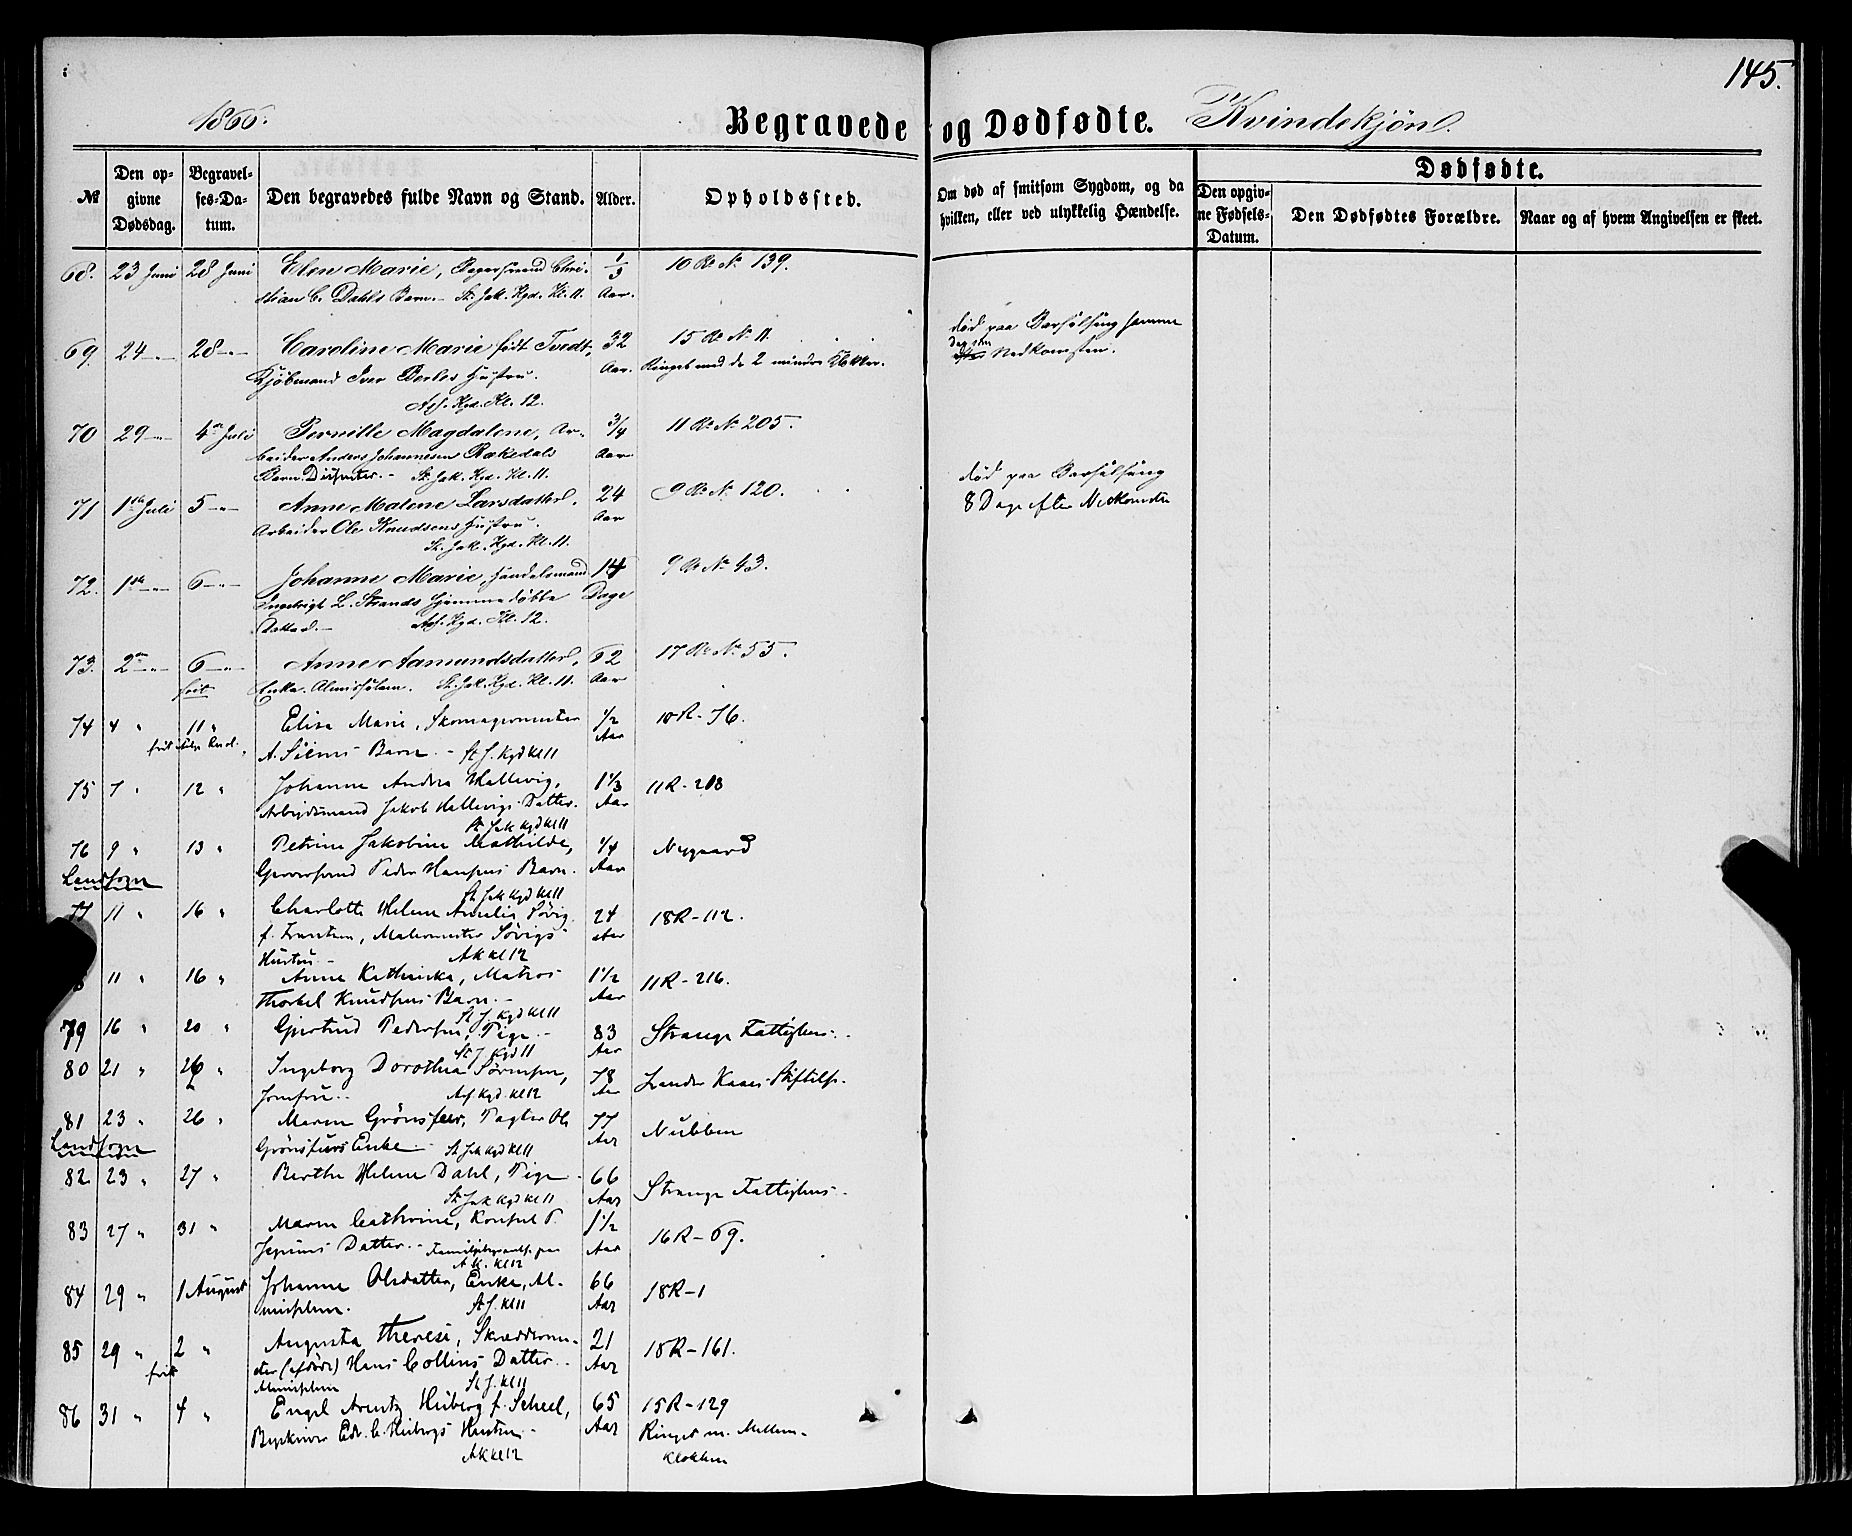 145.
1866.
Begravede og Dødfødte. Kvindekjøn.
№ Den opgivne Dødsdag. Begravelses-Datum. Den begravedes fulde Navn og Stand. Alder. Opholdssted. Om død af smitsom Sygdom, og da hvilken, eller ved ulykkelig Hændelse. Dødfødte.
Den opgivne Fødsels-Datum. Den Dødfødtes Forældre. Naar og af hvem Angivelsen er skeet.
68. 23 Juni 28 Juni Elen Marie, Bagersvend Chri- 1/3 10 R. N. 139.
stian C. Dahls Barn. - St. Jak. Kgd. Kl. 11. Aar.
69. 24 -"- 28 -"- Caroline Marie født Tvedt, 32 15 R. N. 11. død paa Barselseng samme
Kjøbmand Iver Hustru. Aar. Ringet med de 2 mindre Klokker. Dag som Nedkomsten.
Asf. Kgd. Kl. 12.
70 29 -"- 4de Juli Pernille Magdalene, Ar- 3/4 11 R. N. 205.
beider Anders Johannesen Rækedals Aar
Barn. Disenter. - St. Jak. Kgd. Kl. 11.
71 1ste Juli 5 -"- Anne Malene Larsdatter, 24 9 R. N. 120. død paa Barselseng
Arbeider Ole Knudsens Hustru. Aar 8 Dage efter Nedkomsten
St. Jak. Kgd. Kl. 11.
72. 1ste -"- 6 -"- Johanne Marie, Handelsmand 14 9 R. N. 43.
Ingebrigt L. Strands hjemmedøbte Dage
Datter. - Asf. Kgd. Kl. 12.
73. 2den -"- 6 -"- Anne Aamundsdatter, 62 17 R. N. 55.
frit Enke. Almisselem. St. Jak. Kgd. Kl. 11. Aar
74 4 " 11 " Elisa Marie, Skomagermester 1/2 10 R - 76.
frit A. Barn. - St J. Kgd Kl 11 Aar
75 7 " 12 " Johanne Andrea Hallevig, 1 1/3 11 R - 208
Arbejdsmand Jakob Hallevigs Datter. Aar
St Jak Kgd Kl 11
76 9 " 13 " Petrine Jakobine Mathilde, 1/4 Nygaard
Landsogn Peder Hansens Barn. Aar
St Jak Kgd Kl 11
77 11 " 16 " Charlotte Helene Amalia Søvig 24 18 R - 112.
f. Malermester Søvigs Aar
Hustru. - A K Kl 12
11 " 16 " Anne Kathinka, Matros 1 1/2 11 R - 216.
Thorkel Knudsens Barn. - Aar
St J. Kgd Kl 11
79 16 " 20 " Gjertrud Pedersen, Pige. - 83 Strange Fattighus.
St J Kgd 11 Aar
80 21 " 26 " Ingeborg Dorothea Sørensen, 78 Zander Kaaes Stiftelse.
Jomfru. - Asf. Kgd. Kl 12 Aar
81 23 " 26 " Maren Grønsfeer, Pagter Ole 77 Nubben
Landsogn Enke. - St Jak Kgd Kl 11 Aar
82 23 " 27 " Berthe Helene Dahl, Pige 66 Strange Fattighus.
St Jak Kgd Kl 11 Aar
83 27 " 31 " Maren Cathrine, Konsul P. 1 1/2 16 R - 69.
Jepsens Datter. - Familiebegravelse paa Aar
A K. Kl 12
84 29 " 1 August Johanne Olsdatter, Enke, Al- 66 18 R - 1
misselem. St J. Kl 11 Aar
85 29 " 2 " Augusta Therese, Skrædderme- 21 18 R - 161.
frit ster (afdøde) Hans Collins Datter. - Aar
Almisselem St J. Kl 11
86 31 " 4 " Engel Arentz Heiberg f. Scheel, 65 15 R - 129
Byskriver Edv. C. Heibergs Hustru - Aar Ringet m. Mellem-
A K Kl 12 klokken